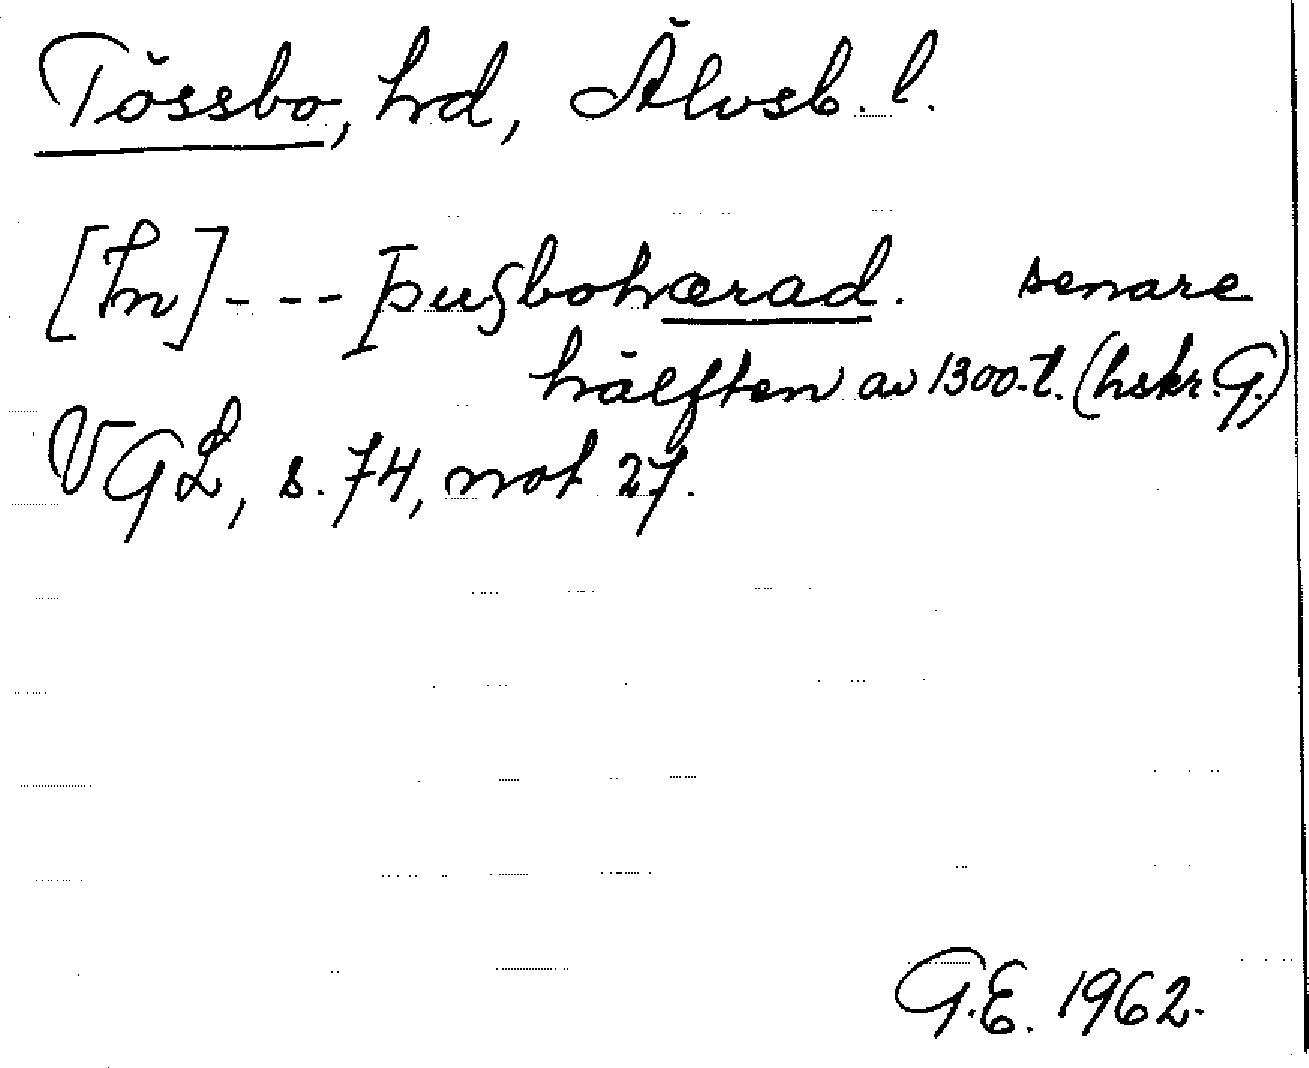 Tössbo, hd, Älvsb. l.
[In] --- þuȝbohærad. senare
hälften av 1300-t. (hskr. G.)
VGL, s. 74, not 27.
G.E. 1962.